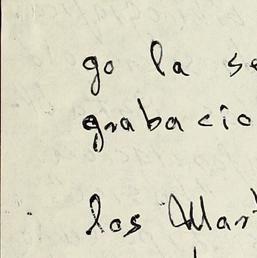 go la se
grabacio
los Mart